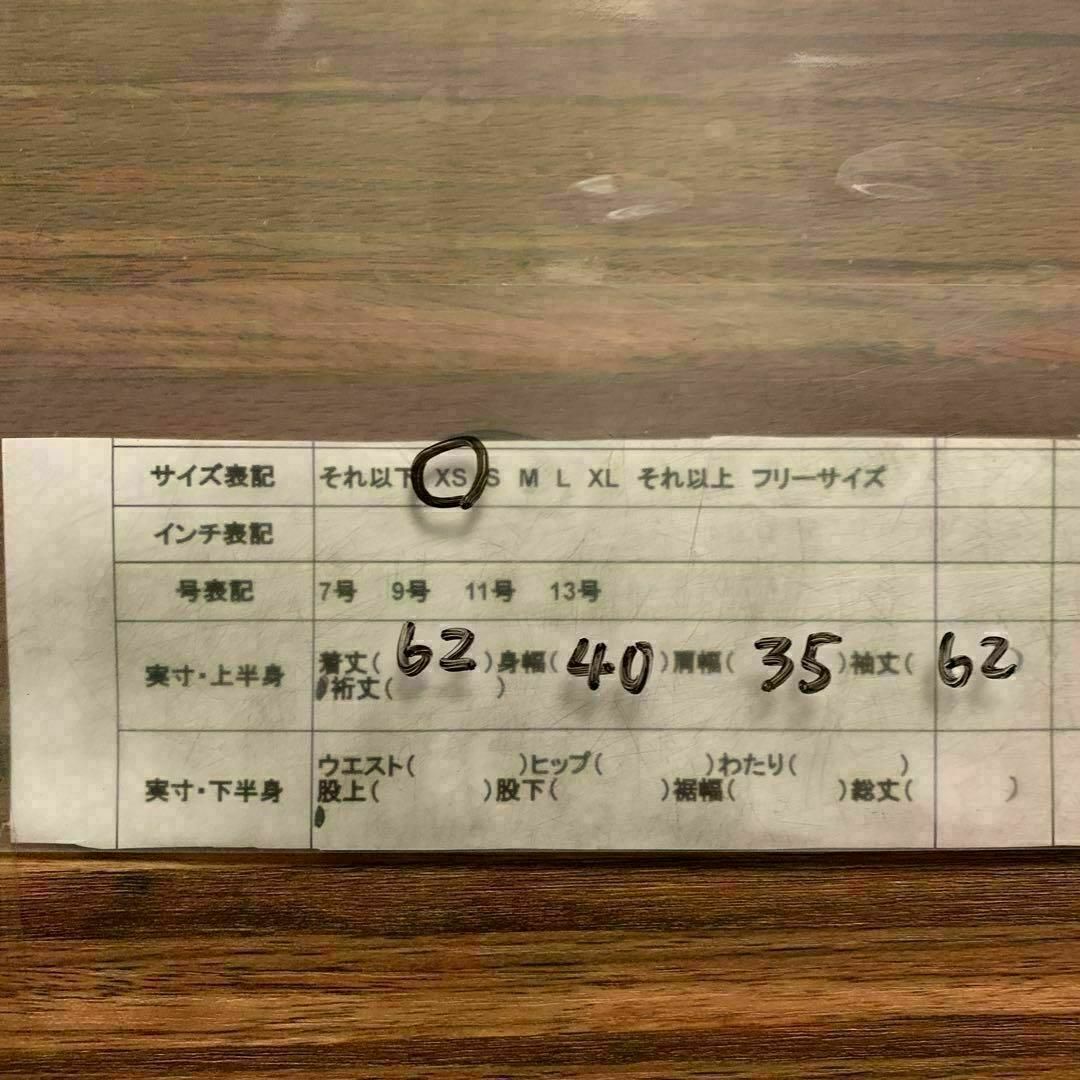 サイズ表記 それ以下 XS S M L XL それ以上 フリーサイズ
インチ表記
号表記 7号 9号 11号 13号
実寸・上半身 着丈( 62 )身幅( 40 )肩幅( 35 )袖丈( 62 )
裄丈( )
実寸・下半身 ウエスト( )ヒップ( )わたり( )
股上( )股下( )裾幅( )総丈( )